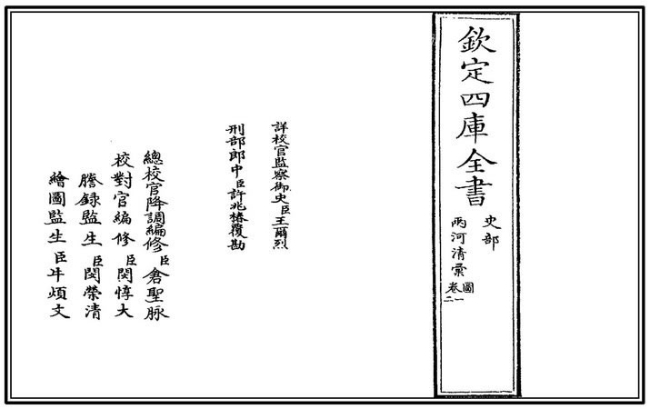 欽定四庫全書
史部
兩河清彙
圖
卷一
二
詳校官監察御史臣王爾烈
刑部郎中臣許兆椿覆勘
總校官降調編修臣倉聖脉
校對官編修臣閔惇大
謄錄監生臣閔榮清
繪圖監生臣牛煩文